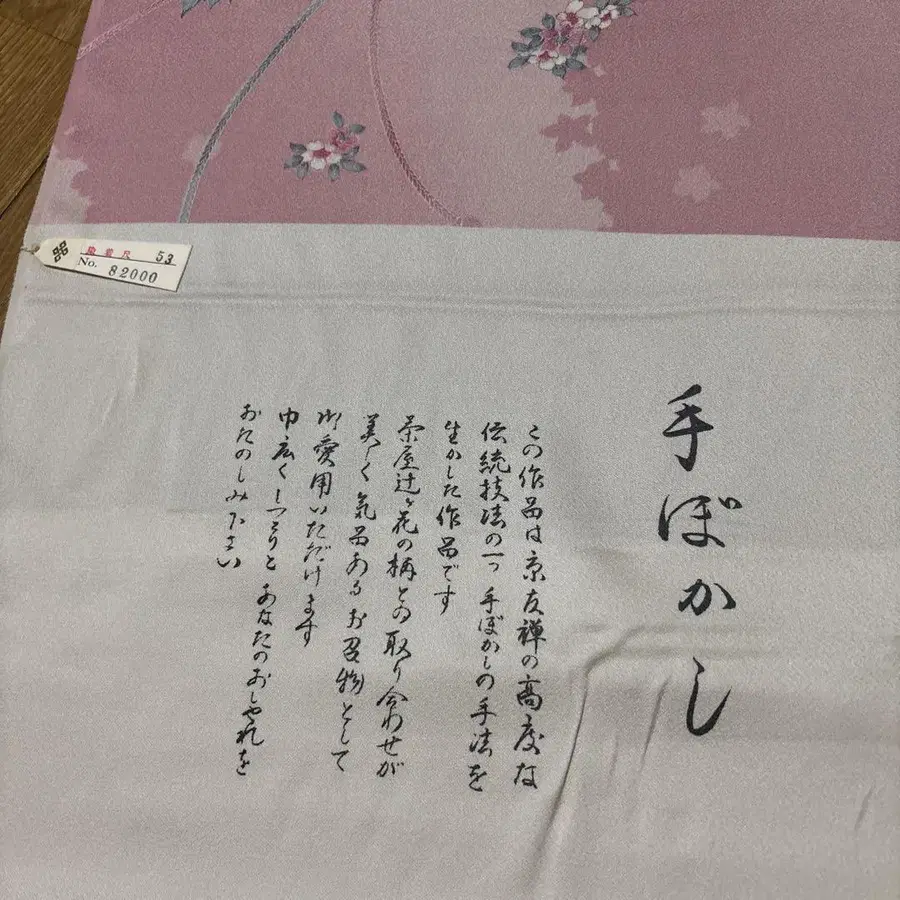 手ぼかし
この作品は京友禅の高度な
伝統技法の一つ手ぼかしの手法を
生かした作品です
茶屋辻ヶ花の柄との取り合わせが
美しく気品あるお召物として
御愛用いただけます
巾広くしっとりとあなたのおしゃれを
おたのしみ下さい
尺 53
No. 82000